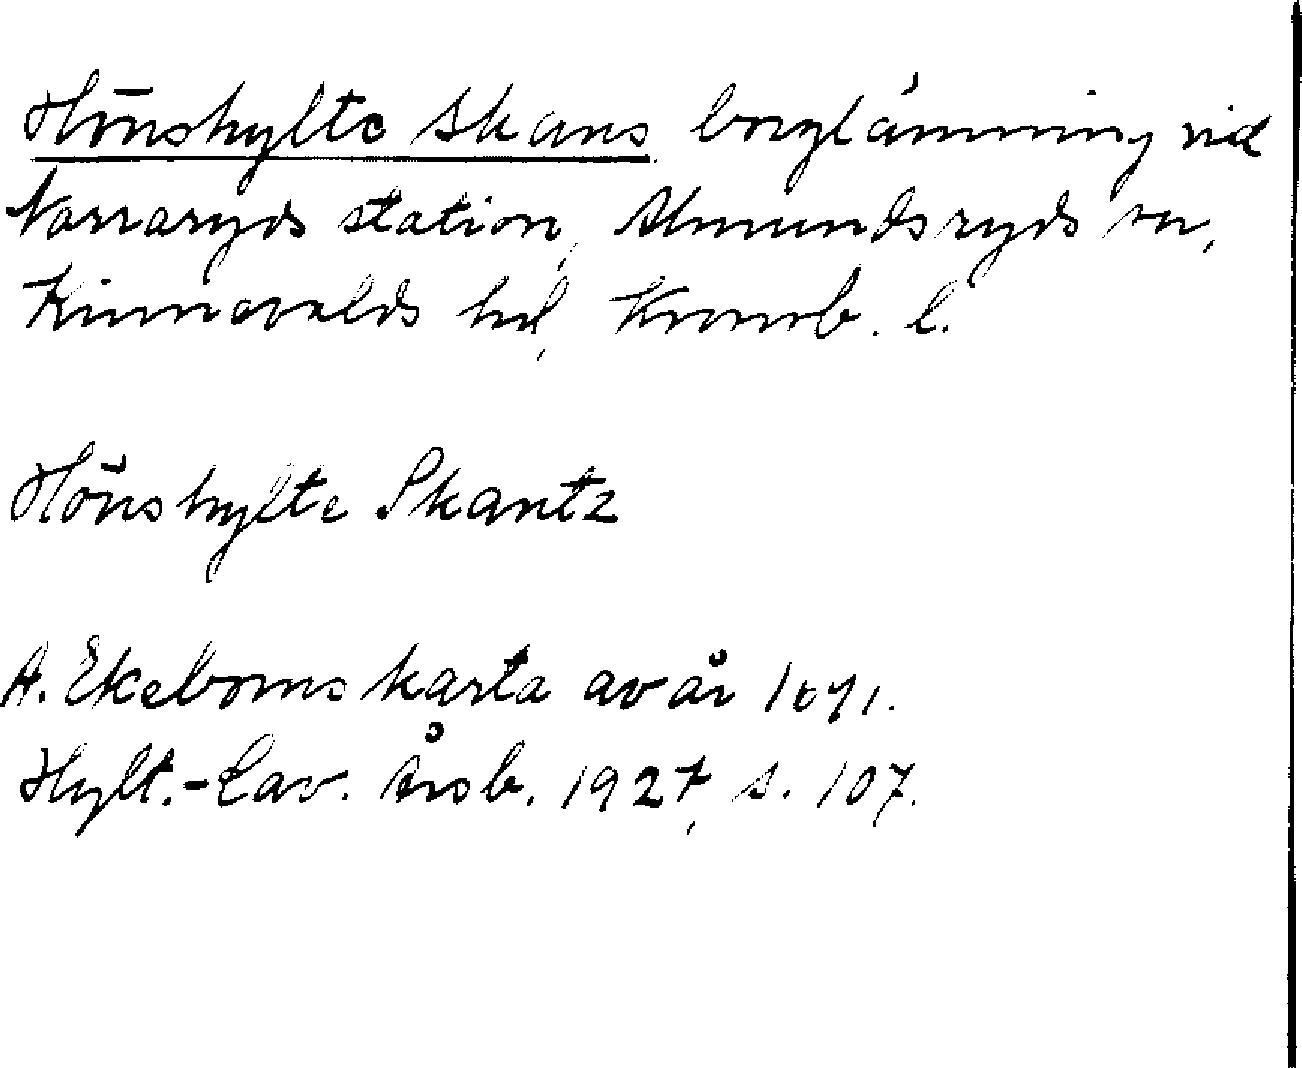 Hönshylte skans borglämning vid
Norraryds station, Almundsryds sn,
Kinnevalds hd, Kronob. l.
Hönshylte Skantz
A. Ekeboms karta av år 1691.
Hylt.-Cav. Årsb. 1927, s. 107.